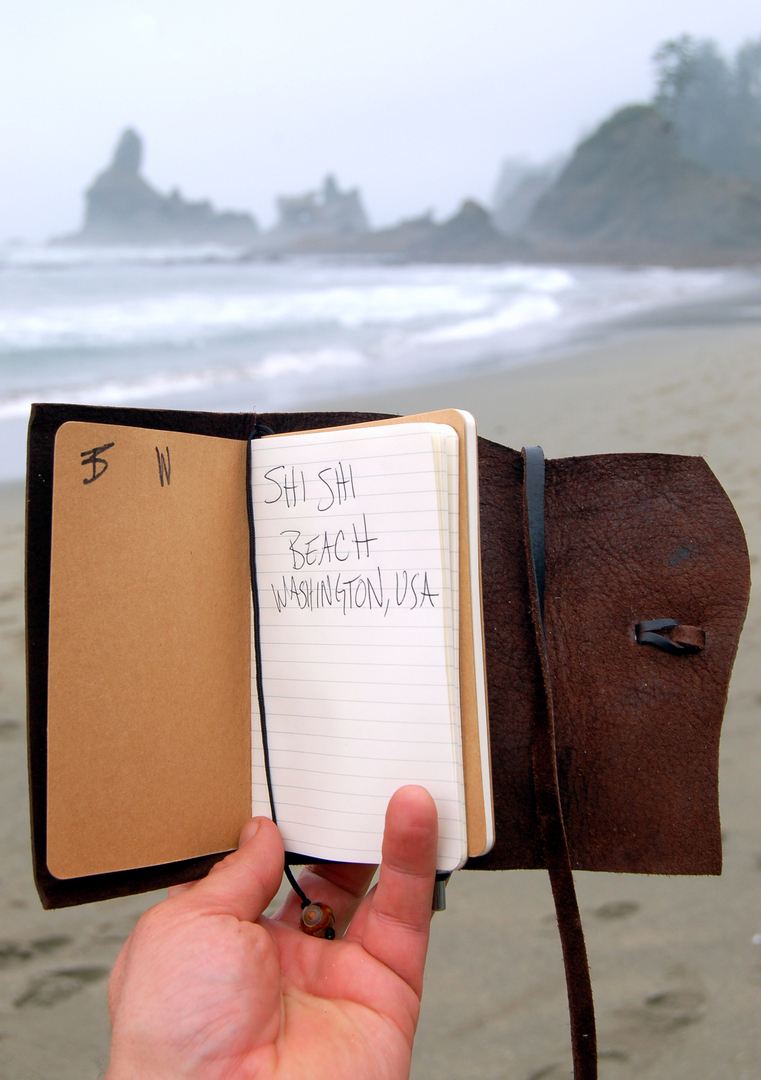 B W
SHI SHI
BEACH
WASHINGTON, USA